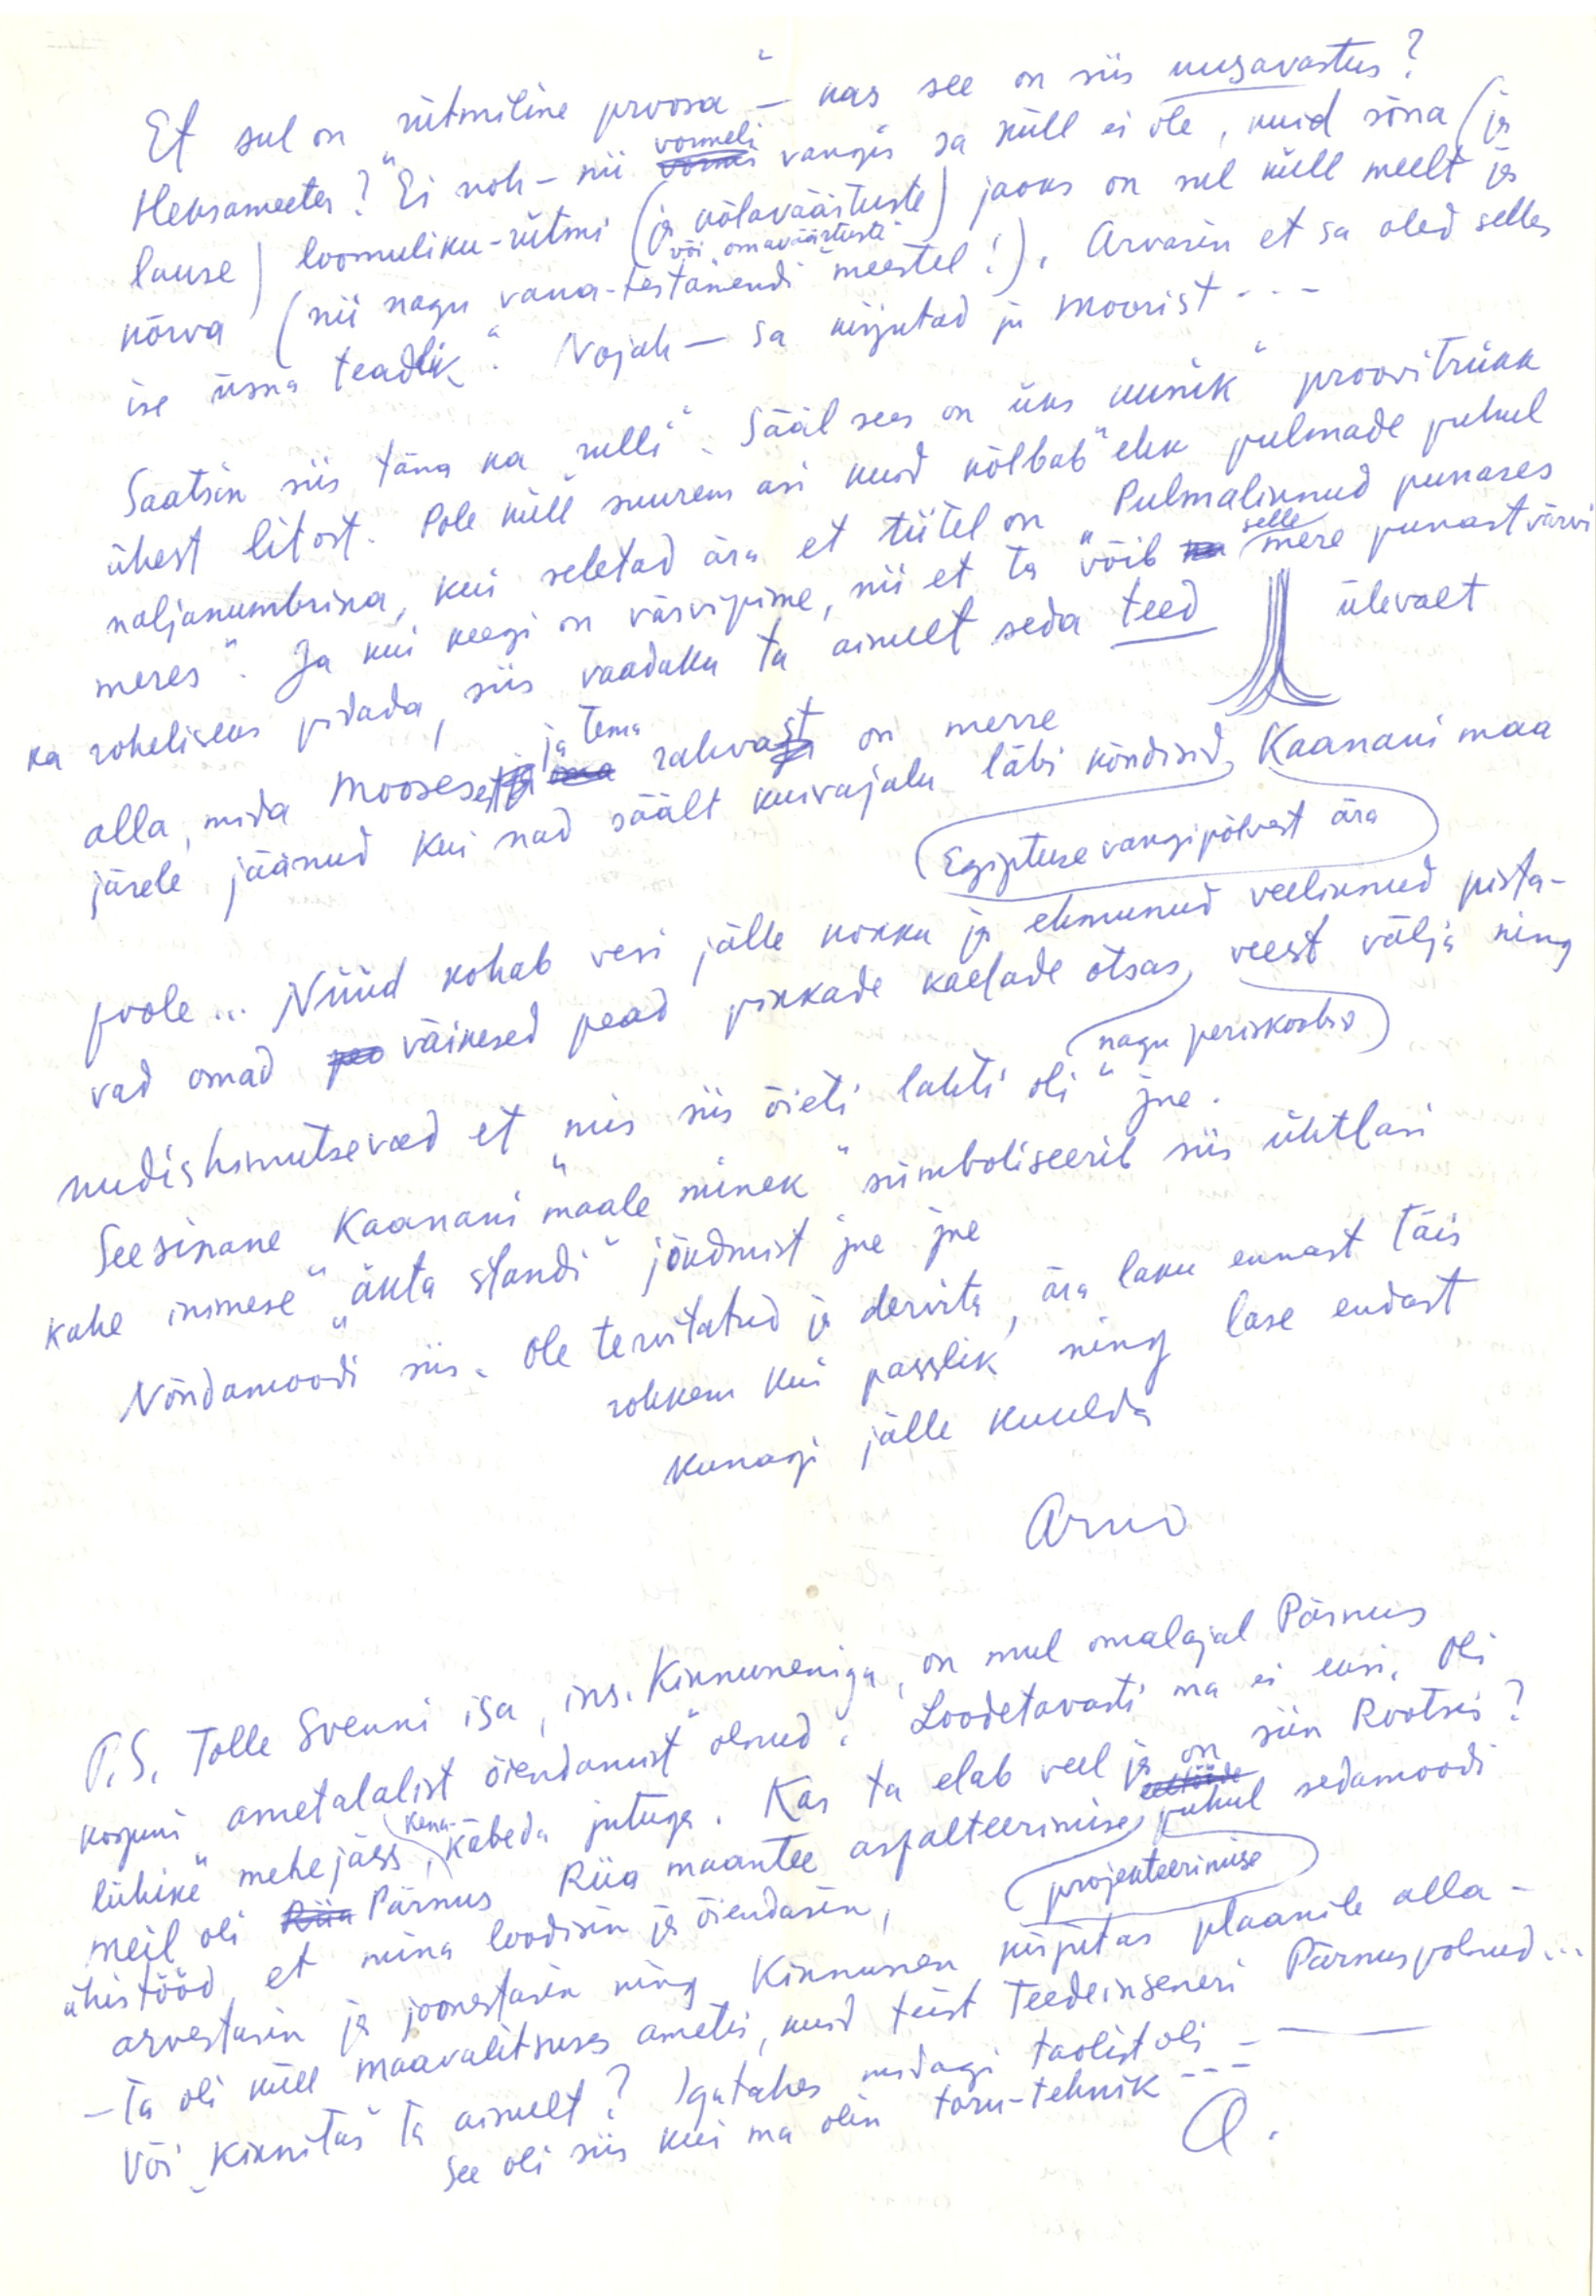 Et sul on "rütmiline proosa" — kas see on siis uusavastus?
Heksameeter? Ei noh — nii vormeli vangis sa küll ei ole, kuid sõna (ja
lause) loomuliku-rütmi (ja kõlaväärtuste) jaoks on sul küll meelt ja
või "omaväärtuste"
kõrva (nii nagu vana-testamendi meestel!). Arvasin et sa oled selles
ise üsna "teadlik". Nojah — sa kirjutad ju moorist - - -
Saatsin siis täna ka "rulli". Sääl sees on üks "uusik" proovitrükk
ühest litost. Pole küll suurem asi kuid kõlbab ehk pulmade puhul
naljanumbrina, kui seletad ära et tiitel on "Pulmalinnud punases
meres". Ja kui keegi on värvipime, nii et ta võib selle mere punast värvi
ka roheliseks pidada, siis vaadaku ta ainult seda teed ülevalt
alla, mida Moosesest ja tema rahvast on merre
järele jäänud kui nad säält kuivajalu läbi kõndisid Kaanani maa
Egiptuse vangipõlvest ära
poole... Nüüd kohab vesi jälle kokku ja ehmunud veelinnud pista-
vad omad väikesed pead pikkade kaelade otsas veest välja ning
nagu periskoobid
uudishimutsevad et "mis siis õieti lahti oli" jne.
Seesinane Kaanani "maale minek" sümboliseerib siis ühtlasi
kahe inimese "äkta standi" jõudmist jne jne
Nõndamoodi siis. Ole tervitatud ja dervita, ära laku ennast täis
rohkem kui passlik ning lase endast
kunagi jälle kuulda
Arno
P.S. Tolle Svenni isa, ins. Kinnuneniga, on mul omalajal Pärnus
koguni ametalalist "õiendamist" olnud. Loodetavasti ma ei eksi. Oli
lühike mehejäss, kena-käbeda jutuga. Kas ta elab veel ja on siin Rootsis?
Meil oli Riia Pärnus Riia maantee asfalteerimise projekteerimise puhul sedamoodi
ühistööd, et mina loodisin ja õiendasin,
arvestasin ja joonestasin ning Kinnunen kirjutas plaanile alla —
— Ta oli küll maavalitsuses ametis, kuid teist teedeinseneri Pärnus polnud...
Või "kinnitas" ta ainult? Igatahes midagi taolist oli — ——
See oli siis kui ma olin toru-tehnik - - -
A.